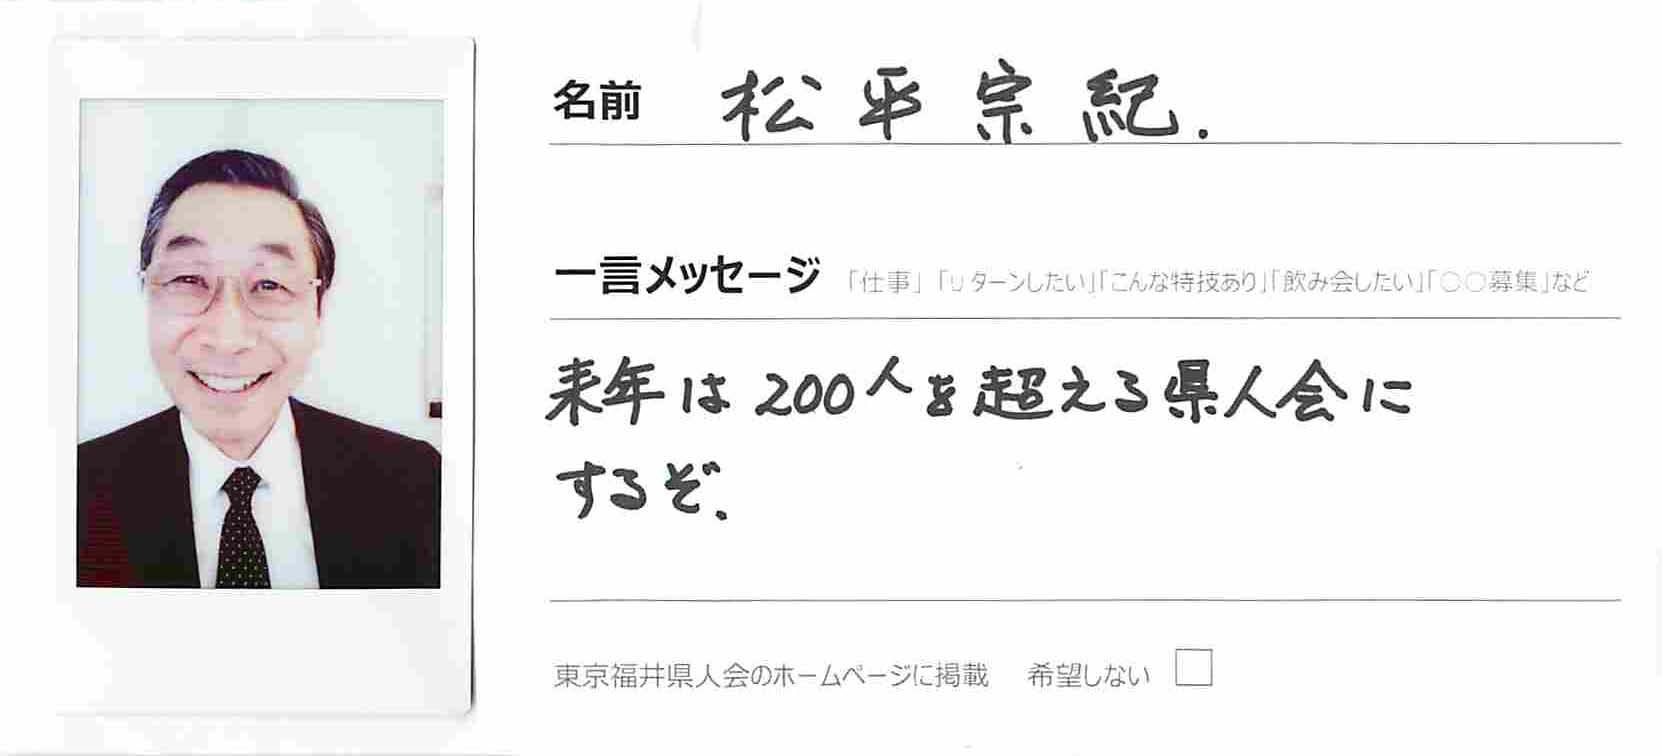 名前 松平宗紀.
一言メッセージ 「仕事」「Uターンしたい」「こんな特技あり」「飲み会したい」「○○募集」など
来年は200人を超える県人会に
するぞ.
東京福井県人会のホームページに掲載 希望しない □